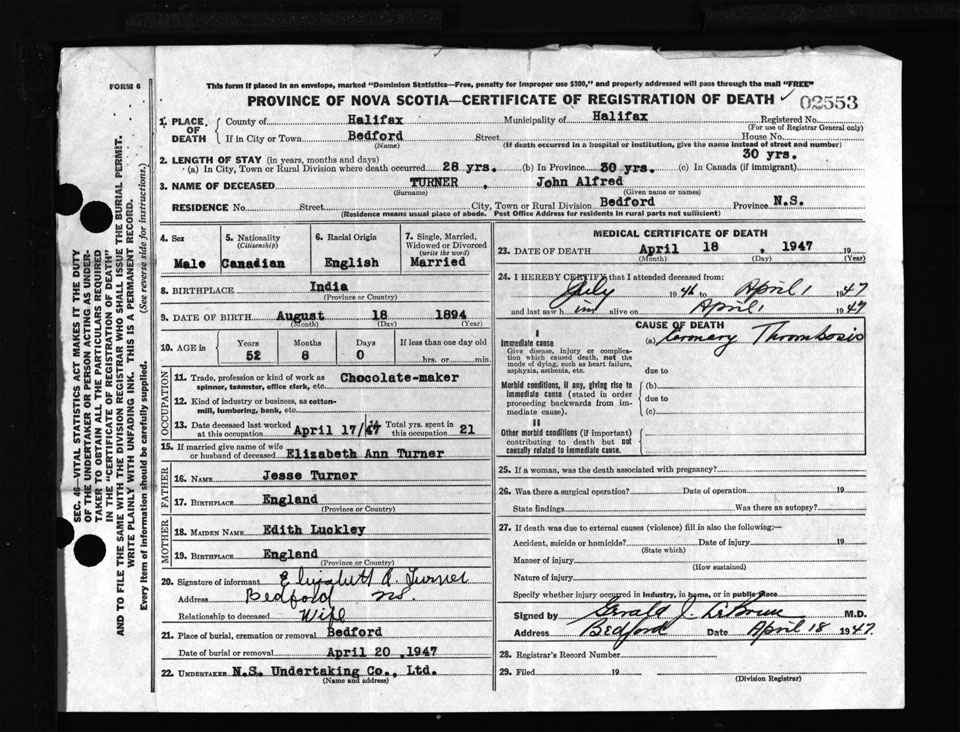 FORM 6
This form if placed in an envelope, marked "Dominion Statistics—Free, penalty for improper use $300," and properly addressed will pass through the mail "FREE"
PROVINCE OF NOVA SCOTIA—CERTIFICATE OF REGISTRATION OF DEATH 02553
1. PLACE OF DEATH County of Halifax Municipality of Halifax Registered No.
(For use of Registrar General only)
If in City or Town Bedford Street House No.
(Name) (If death occurred in a hospital or institution, give the name instead of street and number)
2. LENGTH OF STAY (in years, months and days) 30 yrs.
(a) In City, Town or Rural Division where death occurred 28 yrs. (b) In Province 30 yrs. (c) In Canada (if immigrant)
3. NAME OF DECEASED TURNER, John Alfred
(Surname) (Given name or names)
RESIDENCE No. Street City, Town or Rural Division Bedford Province N.S.
(Residence means usual place of abode. Post Office Address for residents in rural parts not sufficient)
4. Sex Male
5. Nationality (Citizenship) Canadian
6. Racial Origin English
7. Single, Married, Widowed or Divorced (write the word) Married
8. BIRTHPLACE India
(Province or Country)
9. DATE OF BIRTH August 18 1894
(Month) (Day) (Year)
10. AGE in Years Months Days If less than one day old
52 8 0 hrs. or min.
OCCUPATION
11. Trade, profession or kind of work as spinner, teamster, office clerk, etc. Chocolate-maker
12. Kind of industry or business, as cotton-mill, lumbering, bank, etc.
13. Date deceased last worked at this occupation April 17/47 14. Total yrs. spent in this occupation 21
15. If married give name of wife or husband of deceased Elizabeth Ann Turner
FATHER
16. NAME Jesse Turner
17. BIRTHPLACE England
(Province or Country)
MOTHER
18. MAIDEN NAME Edith Luckley
19. BIRTHPLACE England
(Province or Country)
20. Signature of informant Elizabeth A. Turner
Address Bedford NS.
Relationship to deceased Wife
21. Place of burial, cremation or removal Bedford
Date of burial or removal April 20, 1947
22. UNDERTAKER N.S. Undertaking Co., Ltd.
(Name and address)
MEDICAL CERTIFICATE OF DEATH
23. DATE OF DEATH April 18, 1947 19
(Month) (Day) (Year)
24. I HEREBY CERTIFY that I attended deceased from:
July 1946 to April 1947
and last saw him alive on April 1947
CAUSE OF DEATH
I
Immediate cause (a) Coronary Thrombosis
Give disease, injury or complication which caused death, not the mode of dying, such as heart failure, asphyxia, asthenia, etc.
due to
Morbid conditions, if any, giving rise to immediate cause (stated in order proceeding backwards from immediate cause).
(b)
due to
(c)
II
Other morbid conditions (if important) contributing to death but not causally related to immediate cause.
25. If a woman, was the death associated with pregnancy?
26. Was there a surgical operation? Date of operation 19
State findings Was there an autopsy?
27. If death was due to external causes (violence) fill in also the following:—
Accident, suicide or homicide? Date of injury 19
(State which)
Manner of injury
(How sustained)
Nature of injury
Specify whether injury occurred in industry, in home, or in public place
Signed by Gerald J. LeBrun M.D.
Address Bedford Date April 18 1947.
28. Registrar's Record Number
29. Filed 19
(Division Registrar)
SEC. 46—VITAL STATISTICS ACT MAKES IT THE DUTY
OF THE UNDERTAKER OR PERSON ACTING AS UNDER-
TAKER TO OBTAIN ALL THE PARTICULARS REQUIRED
IN THE "CERTIFICATE OF REGISTRATION OF DEATH"
AND TO FILE THE SAME WITH THE DIVISION REGISTRAR WHO SHALL ISSUE THE BURIAL PERMIT.
WRITE PLAINLY WITH UNFADING INK. THIS IS A PERMANENT RECORD.
Every item of information should be carefully supplied. (See reverse side for instructions.)